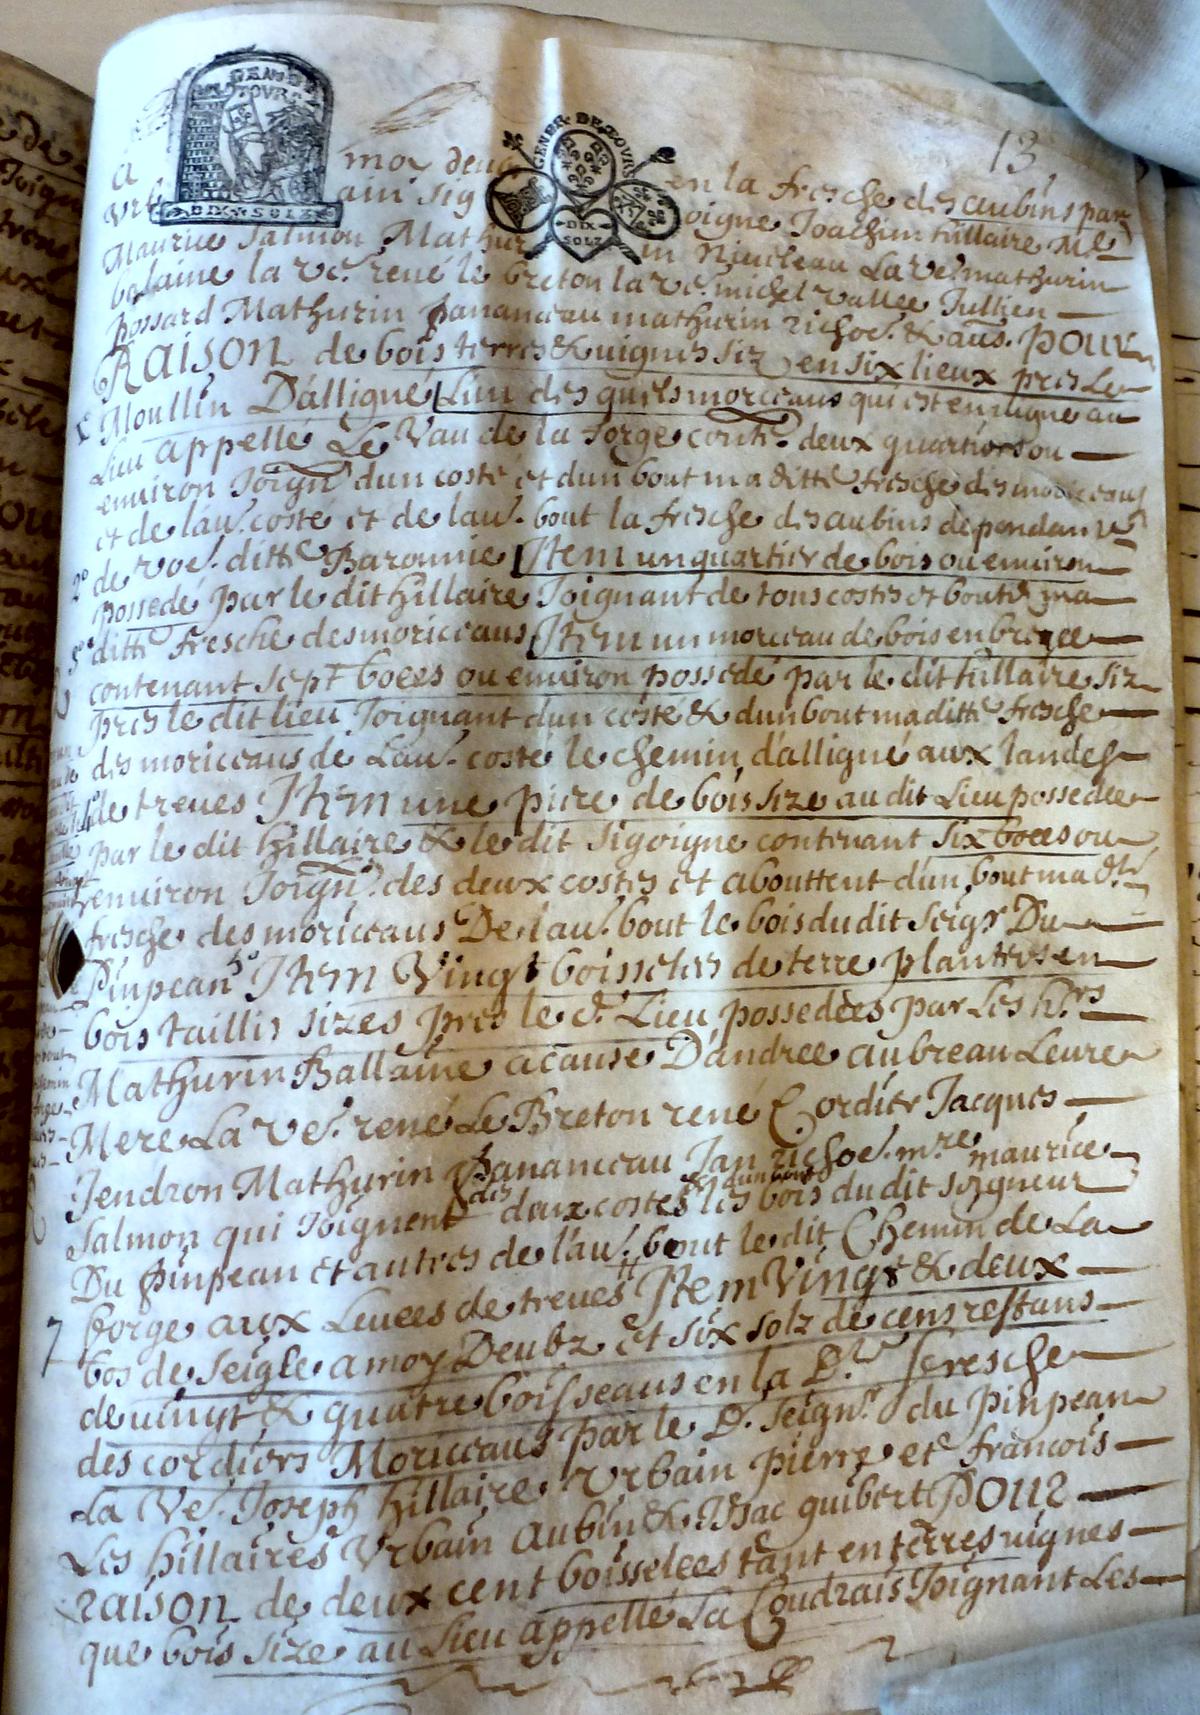 GENER. DE TOURS
DIX SOLZ
DIX SOLZ
13
a moy deue en la fresche des aubins par
Urb ain Sig oigne Joachim hillaire Me
Maurice Salmon Mathur in Nieuleau La ve. mathurin
balaine la ve. rené le breton la ve. michel vallee Jullien
possard Mathurin pananceau mathurin richoe. & aus. pour
RAISON de bois terres & uignes siz en six lieux pres Le
1o Moullin D'alligné Lun des quels morceaus qui est en uigne au
Lieu appellé Le Vau de la forge cont. deux quartiers ou
enuiron Joign dun costé et dun bout ma ditte fresche des moriceaus
et de lau. costé et de lau. bout la fresche des aubins dependante
2o de voe. ditte Baronnie Item un quartier de bois ou enuiron
possedé par le dit hillaire Joignant de tous costes et bouts ma
3o ditte fresche des moriceaus Item un morceau de bois en
contenant sept boees ou enuiron possedé par le dit hillaire siz
pres le dit lieu Joignant dun costé & dun bout ma ditte fresche
des moriceaus de Lau. costé le chemin d'alligné aux landes
4o de treues Item une piece de bois size au dit Lieu possedee
par le dit hillaire & le dit Sigoigne contenant six boees ou
enuiron Joign. des deux costes et abouttent d'un bout ma dte
fresche des moriceaus De lau. bout le bois du dit Seigr Du
Pinpean 5o Item Vingt boisselees de terre plantees en
bois taillis sizes pres le d. Lieu possedées par Les hrs
Mathurin Ballaine a cause D'andree aubreau Leure
Mere La ve. rené Le Breton rené Cordier Jacques
Jendron Mathurin Pananceau Jan richoe. mre maurice
Salmon qui Joignent des deux costes & dun bout les bois du dit seigneur
Du Pinpean et autres de l'au. bout le dit Chemin de La
forge aux Leuees de treues Item Vingt & deux
7 bos de seigle a moy Deubz et six solz de cens restans
de uingt & quatre boisseaus en la de fresche
des cordiers Moriceaus par le d. seign. du Pinpean
La Ve. Joseph hillaire Urbain Pierre et francois
Les hillaires Urbain Aubin & Isac guibert POUR
raison de deux cent boisselees tant en terres uignes
que bois size au Lieu appellé La Coudrais Joignant Les